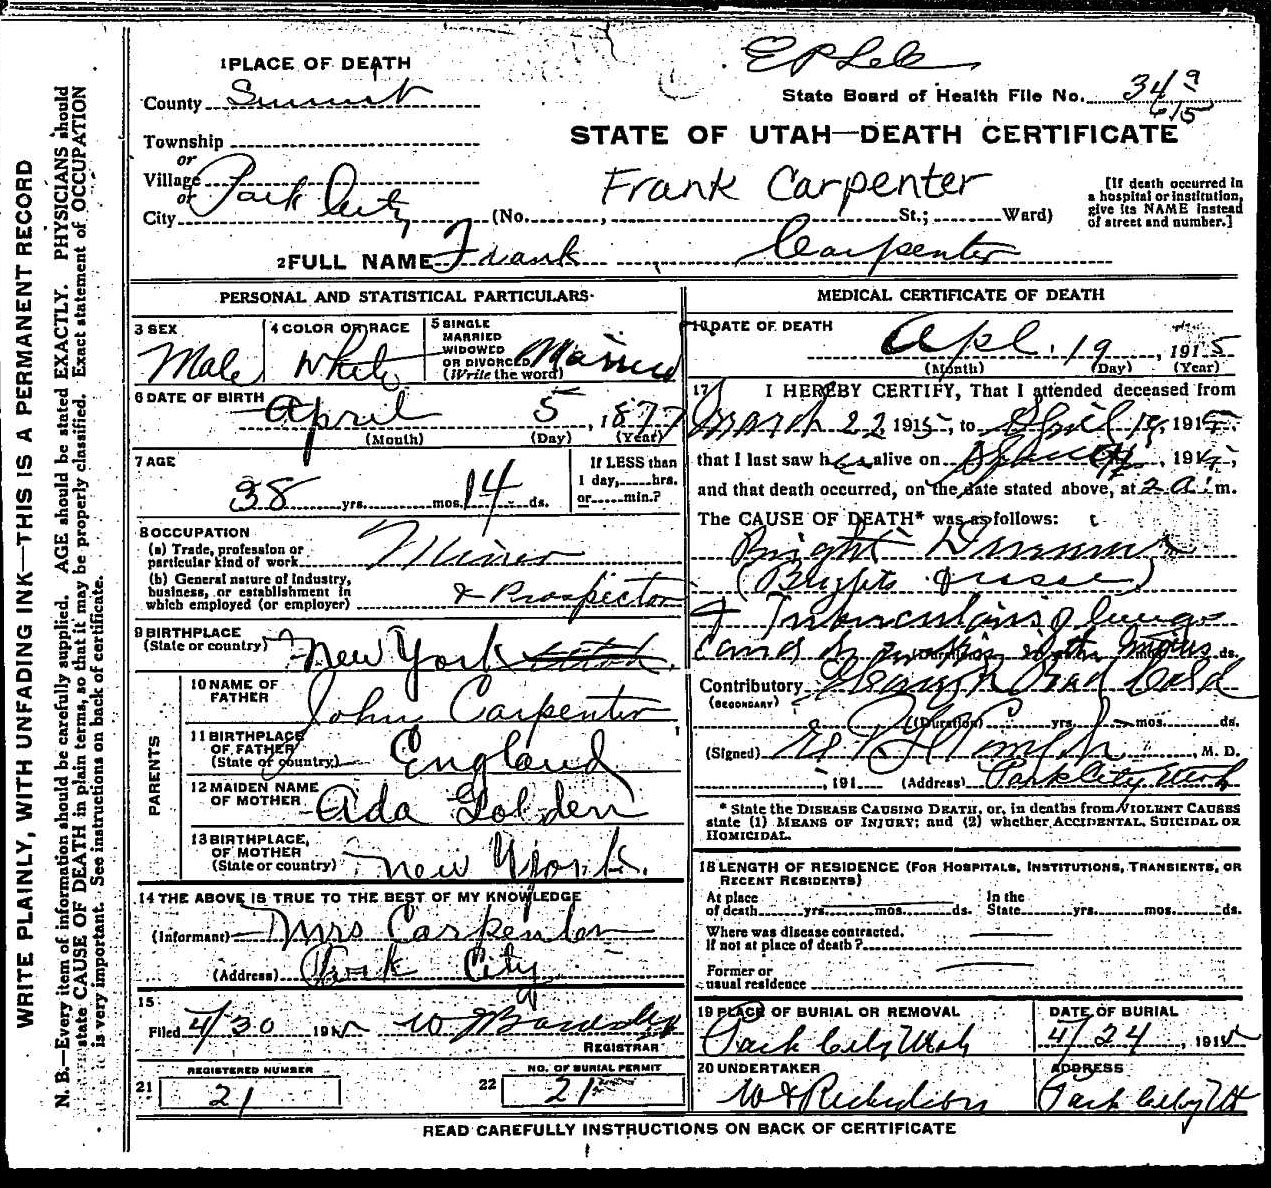 1 PLACE OF DEATH
County Summit
State Board of Health File No. 349
615
STATE OF UTAH—DEATH CERTIFICATE
Township
or
Village
or
City Park City (No. , St.; Ward)
Frank Carpenter
[If death occurred in
a hospital or institution,
give its NAME instead
of street and number.]
2 FULL NAME Frank Carpenter
PERSONAL AND STATISTICAL PARTICULARS
3 SEX
Male
4 COLOR OR RACE
White
5 SINGLE
MARRIED
WIDOWED
OR DIVORCED
(Write the word)
Married
6 DATE OF BIRTH
April 5, 1877
(Month) (Day) (Year)
7 AGE
38 yrs. mos. 14 ds.
If LESS than
1 day, hrs.
or min.?
8 OCCUPATION
(a) Trade, profession or
particular kind of work Miner
(b) General nature of Industry,
business, or establishment in
which employed (or employer) & Prospector
9 BIRTHPLACE
(State or country) New York
PARENTS
10 NAME OF
FATHER John Carpenter
11 BIRTHPLACE
OF FATHER
(State or country) England
12 MAIDEN NAME
OF MOTHER Ada Golden
13 BIRTHPLACE,
OF MOTHER
(State or country) New York.
14 THE ABOVE IS TRUE TO THE BEST OF MY KNOWLEDGE
(Informant) Mrs Carpenter
(Address) Park City
15
Filed 4/30 191
REGISTRAR
21 REGISTERED NUMBER
21
22 NO. OF BURIAL PERMIT
21
MEDICAL CERTIFICATE OF DEATH
16 DATE OF DEATH
Apl. 19, 1915
(Month) (Day) (Year)
17 I HEREBY CERTIFY, That I attended deceased from
March 22 1915, to April 19, 1915
that I last saw h alive on , 191
and that death occurred, on the date stated above, at 2 a.m.
The CAUSE OF DEATH* was as follows:
Bright
(Brights
& Tuberculosis of lungs
(Duration) ds.
Contributory
(SECONDARY)
(Duration) yrs. mos. ds.
(Signed) M. D.
, 191 (Address) Park City, Utah
* State the DISEASE CAUSING DEATH, or, in deaths from VIOLENT CAUSES
state (1) MEANS OF INJURY; and (2) whether ACCIDENTAL, SUICIDAL OR
HOMICIDAL.
18 LENGTH OF RESIDENCE (FOR HOSPITALS, INSTITUTIONS, TRANSIENTS, OR
RECENT RESIDENTS)
At place
of death yrs. mos. ds.
In the
State yrs. mos. ds.
Where was disease contracted.
If not at place of death?
Former or
usual residence
19 PLACE OF BURIAL OR REMOVAL
Park City Utah
DATE OF BURIAL
4/24, 191
20 UNDERTAKER
Richardson
ADDRESS
Park City Ut
READ CAREFULLY INSTRUCTIONS ON BACK OF CERTIFICATE
WRITE PLAINLY, WITH UNFADING INK—THIS IS A PERMANENT RECORD
N. B.—Every item of information should be carefully supplied. AGE should be stated EXACTLY. PHYSICIANS should
state CAUSE OF DEATH in plain terms, so that it may be properly classified. Exact statement of OCCUPATION
is very important. See instructions on back of certificate.